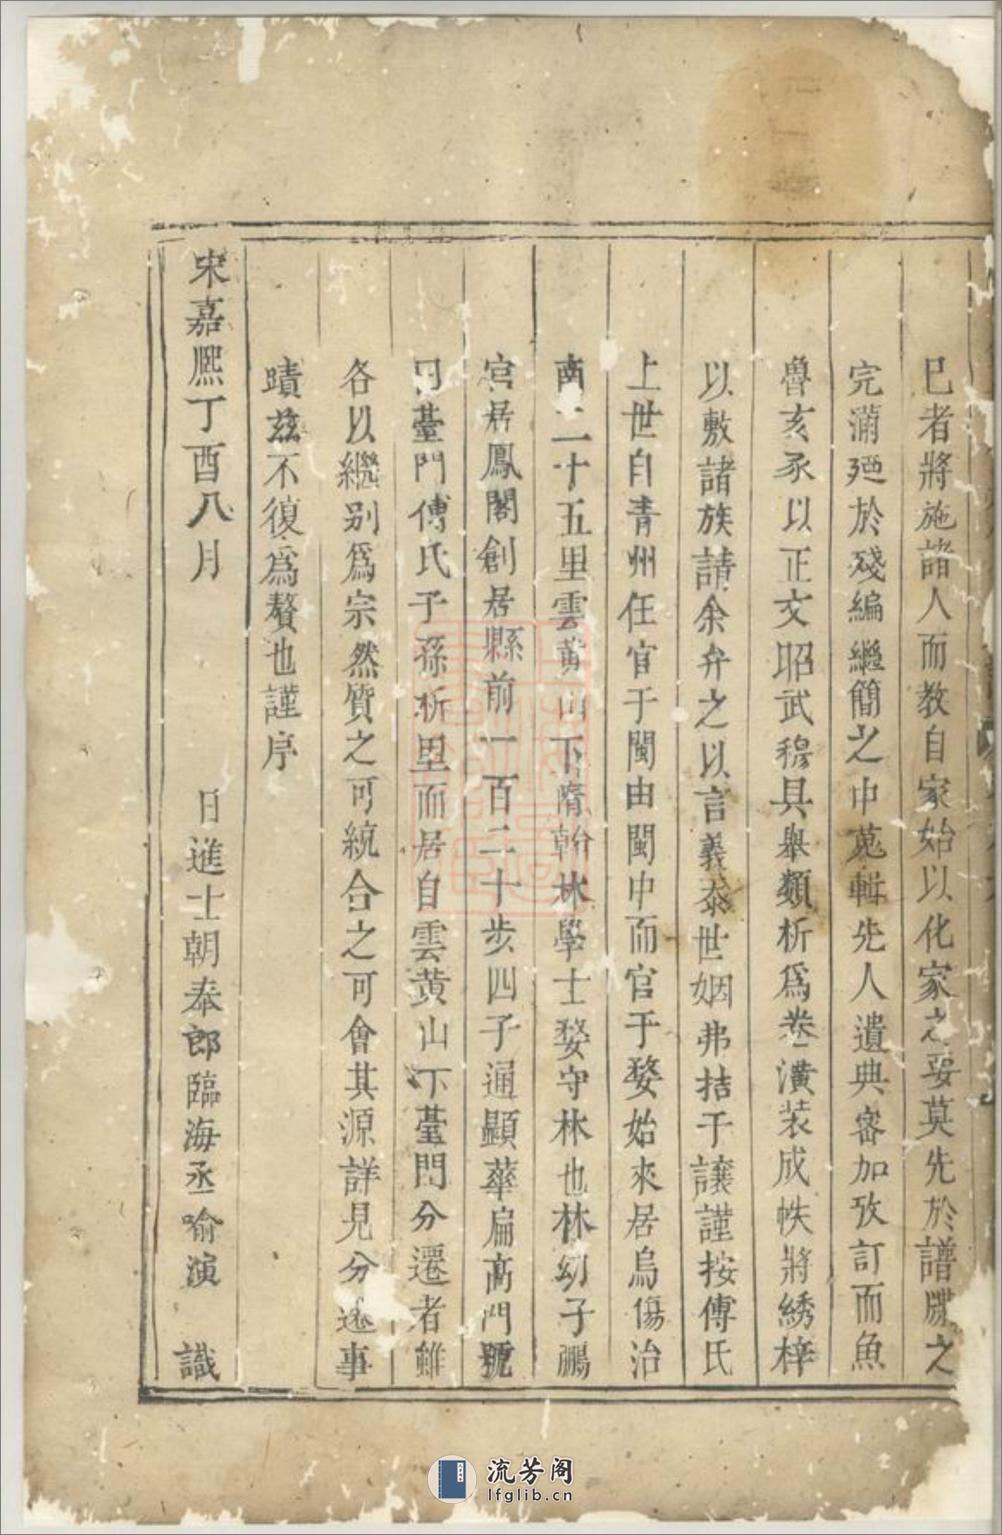 已者將施諸人而教自家始以化家之要莫先於譜牒之
完滿廼於殘編繼簡之中蒐輯先人遺典審加攷訂而魚
魯亥豕以正文昭武穆具舉類析爲卷潢装成帙將綉梓
以敷諸族請余弁之以言義忝世姻弗拮于讓謹按傅氏
上世自青州任官于閩由閩中而官于婺始來居烏傷治
南二十五里雲黄山下隋翰林學士婺守林也林幼子鵬
官居鳳閣創居縣前一百二十步四子通顯華扁高門號
曰臺門傅氏子孫析里而居自雲黄山下臺門分遷者雖
各以繼别爲宗然質之可統合之可會其源詳見分迯事
蹟兹不復爲贅也謹序
宋嘉熈丁酉八月 日進士朝奉郎臨海丞喻演 識
流芳阁
lfglib.cn